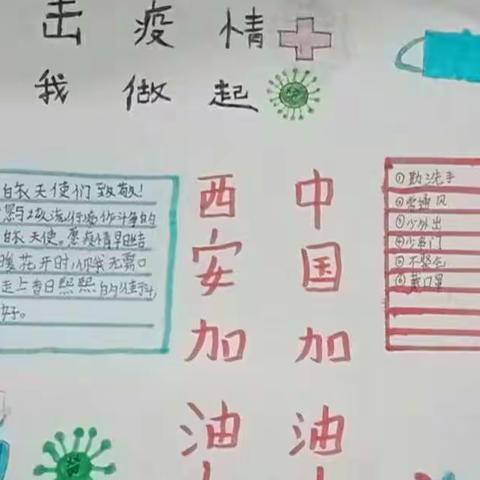 击疫情
我做起
白衣天使们致敬!
白衣天使。愿疫情早日结
暖花开时,你我无需口
走上昔日熙熙的街头,
好。
西安加油
中国加油
①勤洗手
②常通风
③少外出
④少串门
⑤不聚会
⑥戴口罩